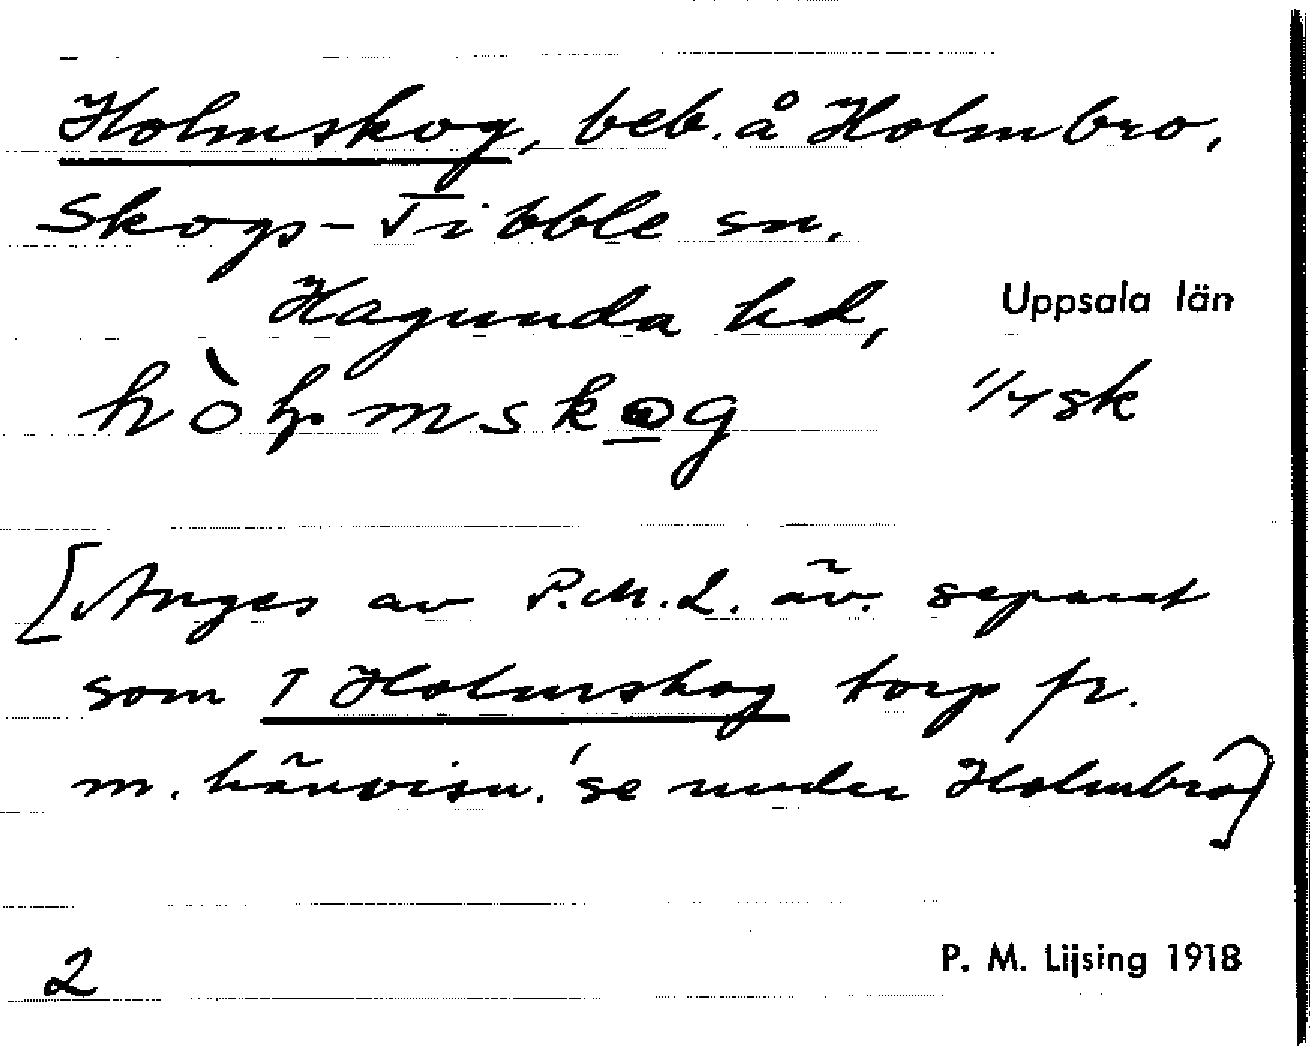 Holmskog, beb. å Holmbro,
Skogs-Tibble sn.
Hagunda hd,
Uppsala län
1/4 sk
[Anges av P.M.L. äv. separat
som 1 Holmskog torp fr.
m. hänvisn. 'se under Holmbro]
2
P. M. Lijsing 1918